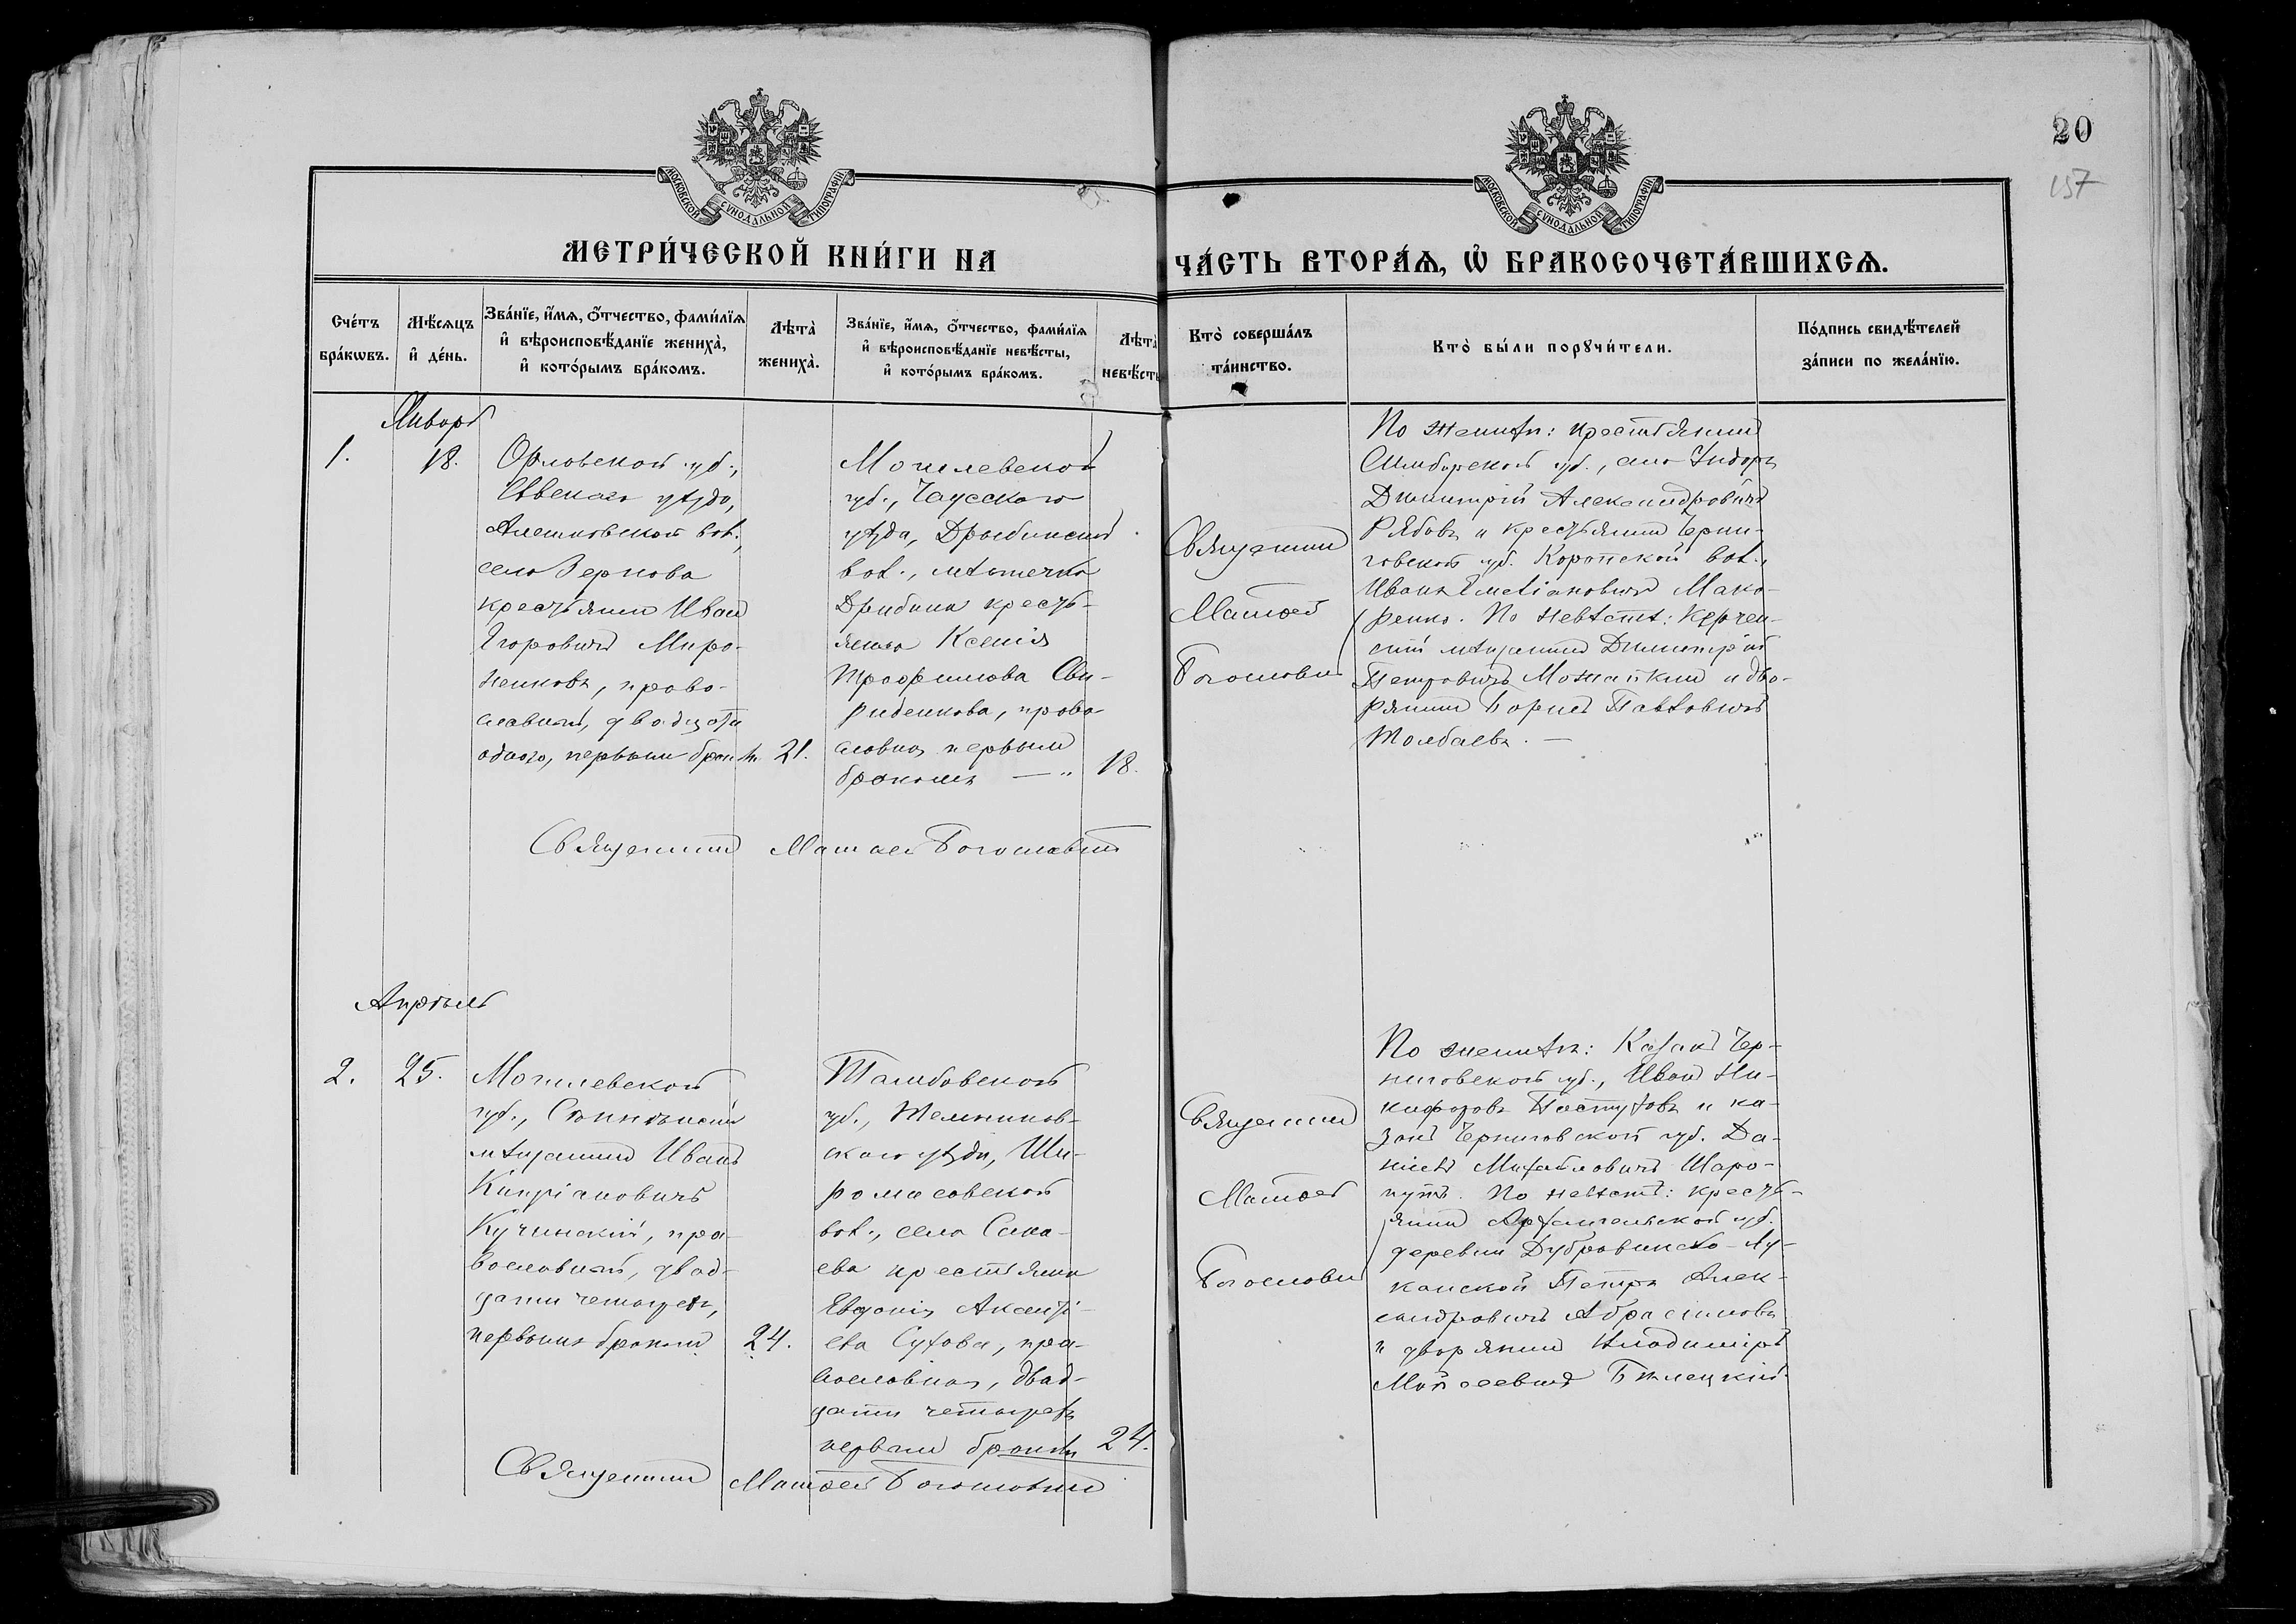 20
157
МОСКОВСКОЙ СУНОДАЛЬНОЙ ТИПОГРАФІИ
МОСКОВСКОЙ СУНОДАЛЬНОЙ ТИПОГРАФІИ
МЕТРИ́ЧЕСКОЙ КНИ́ГИ НА
ЧА́СТЬ ВТОРА́Ѧ, Ѡ҆ БРАКОСОЧЕТА́ВШИХСѦ.
Сче́тъ
бра́кѡвъ.
Мѣ́сѧцъ
и҆ де́нь.
Зва́нїе, и҆́мѧ, ѻ҆́тчество, фами́лїѧ
и҆ вѣроисповѣ́данїе жениха̀,
и҆ кото́рымъ бра́комъ.
Лѣта̀
жениха̀.
Зва́нїе, и҆́мѧ, ѻ҆́тчество, фами́лїѧ
и҆ вѣроисповѣ́данїе невѣ́сты,
и҆ кото́рымъ бра́комъ.
Лѣта̀
невѣ́сты
Кто̀ соверша́лъ
та́инство.
Кто̀ бы́ли порꙋчи́тели.
По́дпись свидѣ́телей
за́писи по жела́нїю.
Январь
1.
18.
Орловской губ.,
Сѣвскаго уѣзда,
Алешковской вол.,
села Зернова
крестьянинъ Иванъ
Егоровичъ Миро-
ненковъ, право-
славный, двадцати
одного, первымъ бракомъ
21.
Могилевской
губ., Чаусскаго
уѣзда, Дрыбинской
вол., мѣстечка
Дрибина кресть-
янка Ксенія
Трофимова Сви-
риденкова, право-
славная первымъ
бракомъ — "
18.
Священникъ
Матѳей
Богословскій
По женихѣ: крестьянинъ
Симбирской губ., села
Димитрій Александровичъ
Рябовъ и крестьянинъ Черни-
говской губ. Коропской вол.,
Иванъ Емеліановичъ Мака-
ренко. По невѣстѣ: Керчен-
скій мѣщанинъ Димитрій
Петровичъ Можайкин и дво-
рянинъ Борисъ Павловичъ
Толбаевъ. —
Священникъ Матѳей Богословскій
Апрѣль
2.
25.
Могилевской
губ., Сѣнненскій
мѣщанинъ Иванъ
Кипріановичъ
Кучинскій, пра-
вославный, двад-
цати четырехъ,
первымъ бракомъ
24.
Тамбовской
губ., Темников-
скаго уѣзда, Ши-
ромасовской
вол., села Сака-
ева крестьянка
Евдокія Аксенті-
ева Сухова, пра-
вославная, двад-
цати четырехъ
первымъ бракомъ
24.
Священникъ
Матѳей
Богословскій
По женихѣ: Казакъ Чер-
ниговской губ., Иванъ Ни-
кифоровъ Пастуховъ и ка-
закъ Черниговской губ. Да-
ніилъ Михайловичъ Шаро-
путъ. По невѣстѣ: кресть-
янинъ Архангельской губ.
деревни
Петръ Алек-
сандровичъ Абрасимовъ
и дворянинъ Владиміръ
Моисеевичъ Билецкій
Священникъ Матѳей Богословскій